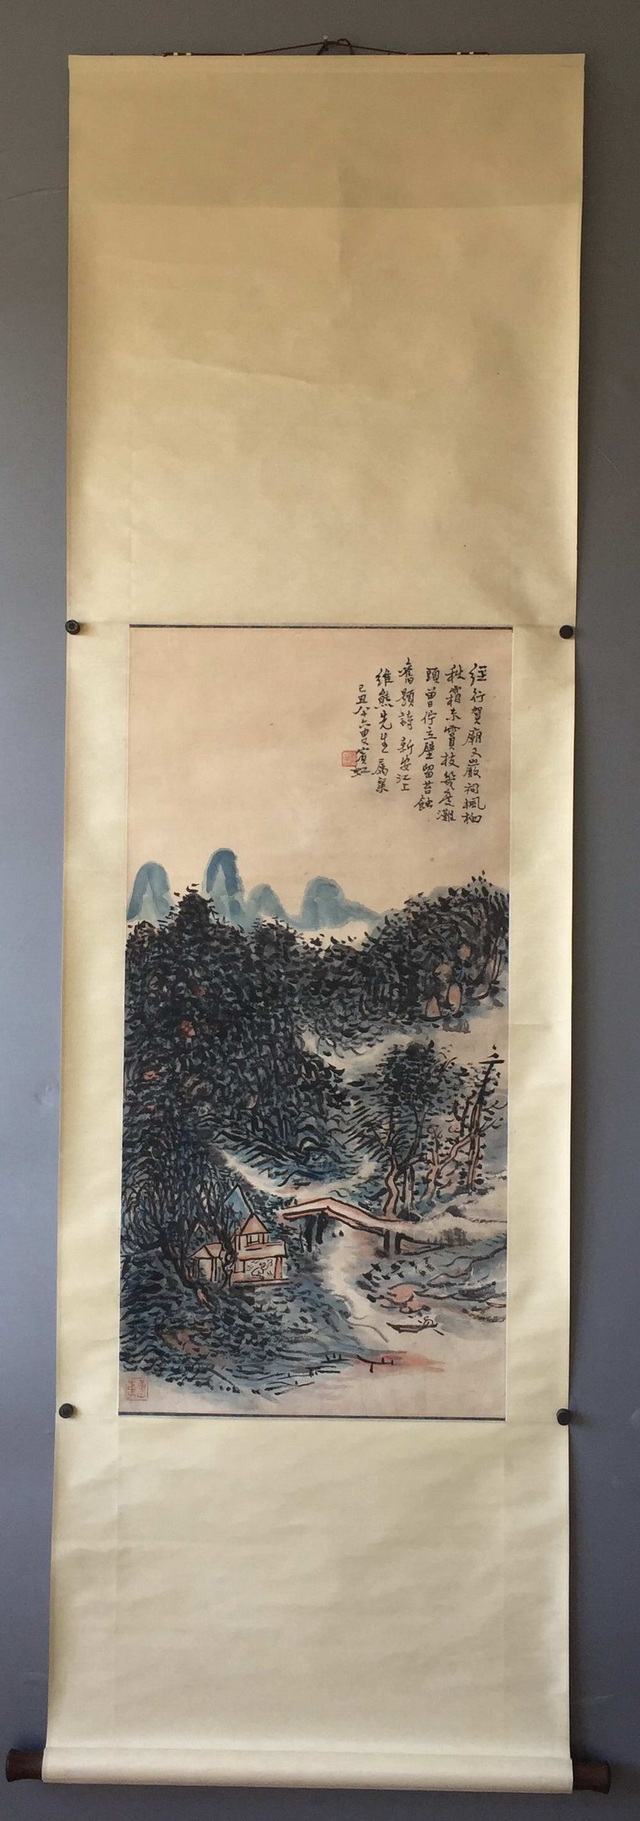 經行賀廟又嚴祠楓柏
秋霜未實枝幾度灘
頭曾佇立壁留苔蝕
舊題詩 新安江上
維熊先生屬粲
己丑八十六叟賓虹